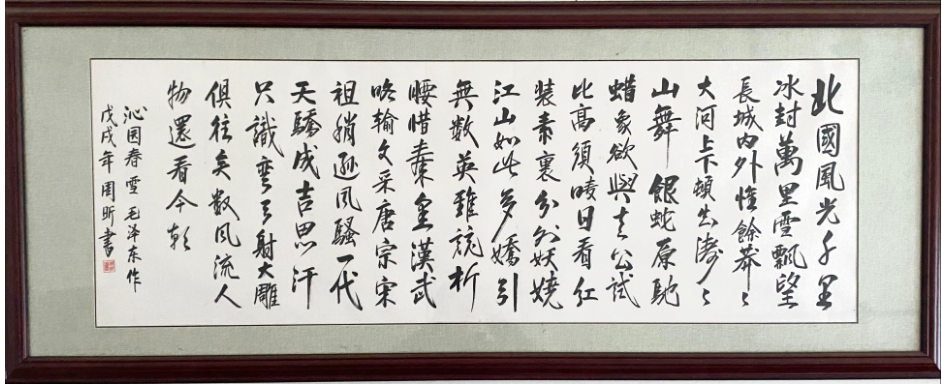 北國風光千里
冰封萬里雪飄望
長城内外惟餘莽〻
大河上下頓失滔〻
山舞银蛇原馳
蜡象欲與天公試
比高須晴日看红
装素裹分外妖娆
江山如此多嬌引
無數英雄競折
腰惜秦皇漢武
略输文采唐宗宋
祖稍逊风騷一代
天驕成吉思汗
只識弯弓射大雕
俱往矣数风流人
物還看今朝
沁园春雪毛泽东作
戊戌年周昕書